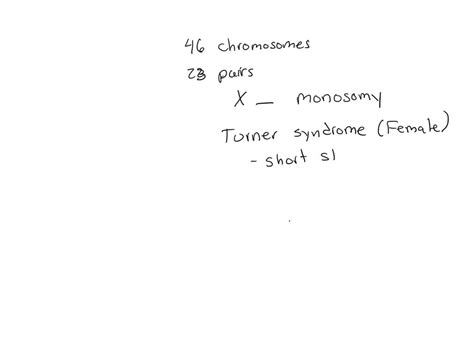 46 chromosomes
23 pairs
X _ monosomy
Turner syndrome (Female)
- short sl